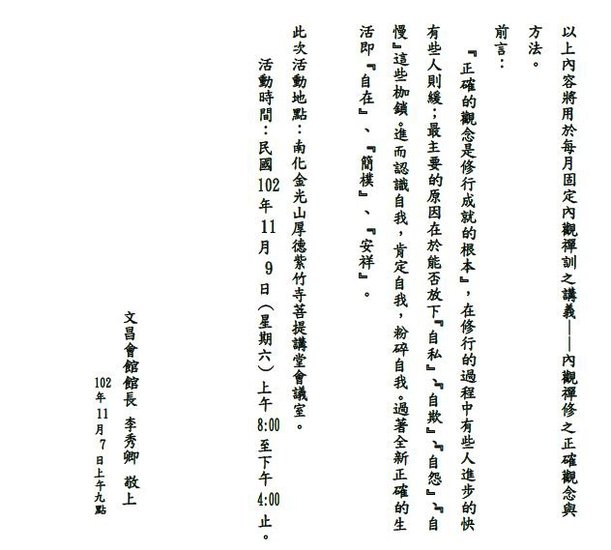 以上內容將用於每月固定內觀禪訓之講義──內觀禪修之正確觀念與
方法。
前言：
『正確的觀念是修行成就的根本』，在修行的過程中有些人進步的快
有些人則緩；最主要的原因在於能否放下『自私』、『自欺』、『自怨』、『自
慢』這些枷鎖。進而認識自我，肯定自我，粉碎自我。過著全新正確的生
活即『自在』、『簡樸』、『安祥』。
此次活動地點：南化金光山厚德紫竹寺菩提講堂會議室。
活動時間：民國102年11月9日（星期六）上午8:00至下午4:00止。
文昌會館館長 李秀卿 敬上
102年11月7日上午九點